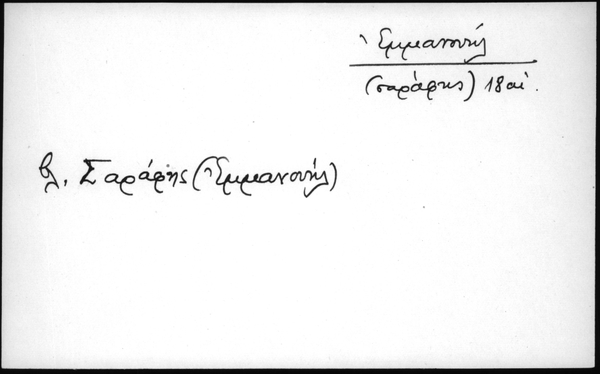 Ἐμμανουήλ
(σαράφης) 18 αἰ.
βλ. Σαράφης (Ἐμμανουήλ)